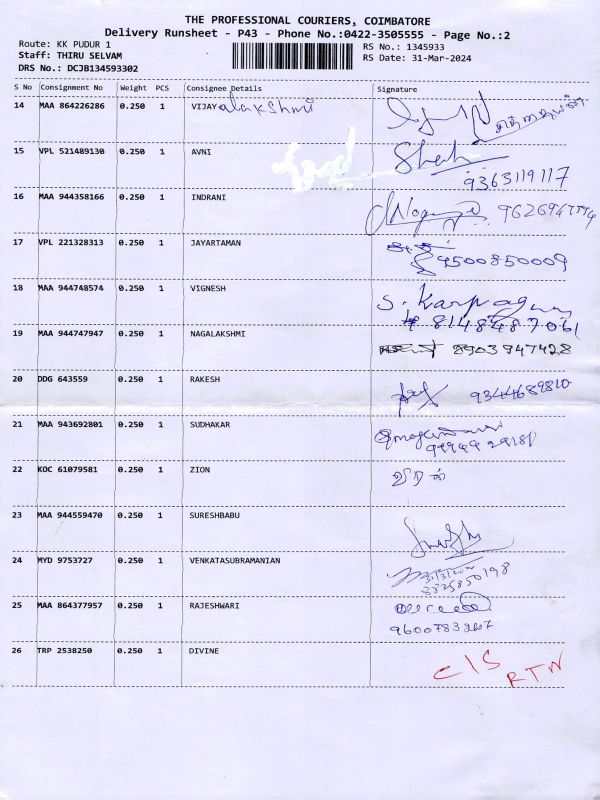 THE PROFESSIONAL COURIERS, COIMBATORE
Delivery Runsheet - P43 - Phone No.:0422-3505555 - Page No.:2
Route: KK PUDUR 1
RS No.: 1345933
Staff: THIRU SELVAM
RS Date: 31-Mar-2024
DRS No.: DCJB134593302
S No Consignment No Weight PCS Consignee Details Signature
14 MAA 864226286 0.250 1 VIJAYalakshmi
15 VPL 521489130 0.250 1 AVNI
9363119117
16 MAA 944358166 0.250 1 INDRANI
17 VPL 221328313 0.250 1 JAYARTAMAN
9500850009
18 MAA 944748574 0.250 1 VIGNESH
S. Karpagam
8148487061
19 MAA 944747947 0.250 1 NAGALAKSHMI
8903947428
20 DDG 643559 0.250 1 RAKESH 9344689810
21 MAA 943692801 0.250 1 SUDHAKAR
22 KOC 61079581 0.250 1 ZION
23 MAA 944559470 0.250 1 SURESHBABU
24 MYD 9753727 0.250 1 VENKATASUBRAMANIAN
25 MAA 864377957 0.250 1 RAJESHWARI
26 TRP 2538250 0.250 1 DIVINE C/S RTN